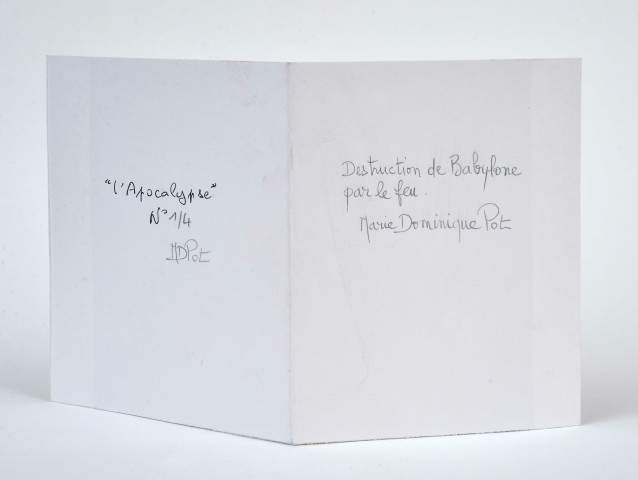 "l'Apocalypse"
N° 1/4
MDPot
Destruction de Babylone
par le feu.
Marie Dominique Pot